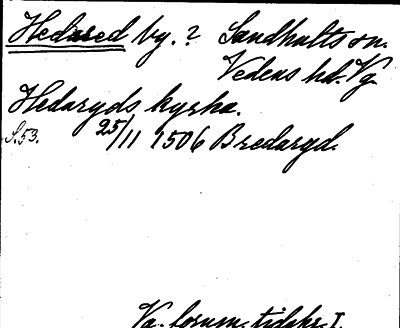 Hedared by.? Sandhults sn.
Vedens hd. Vg.
Hedaryds kyrka.
S. 53. 25/11 1506 Bredaryd.
Vg. fornm. tidskr. I.